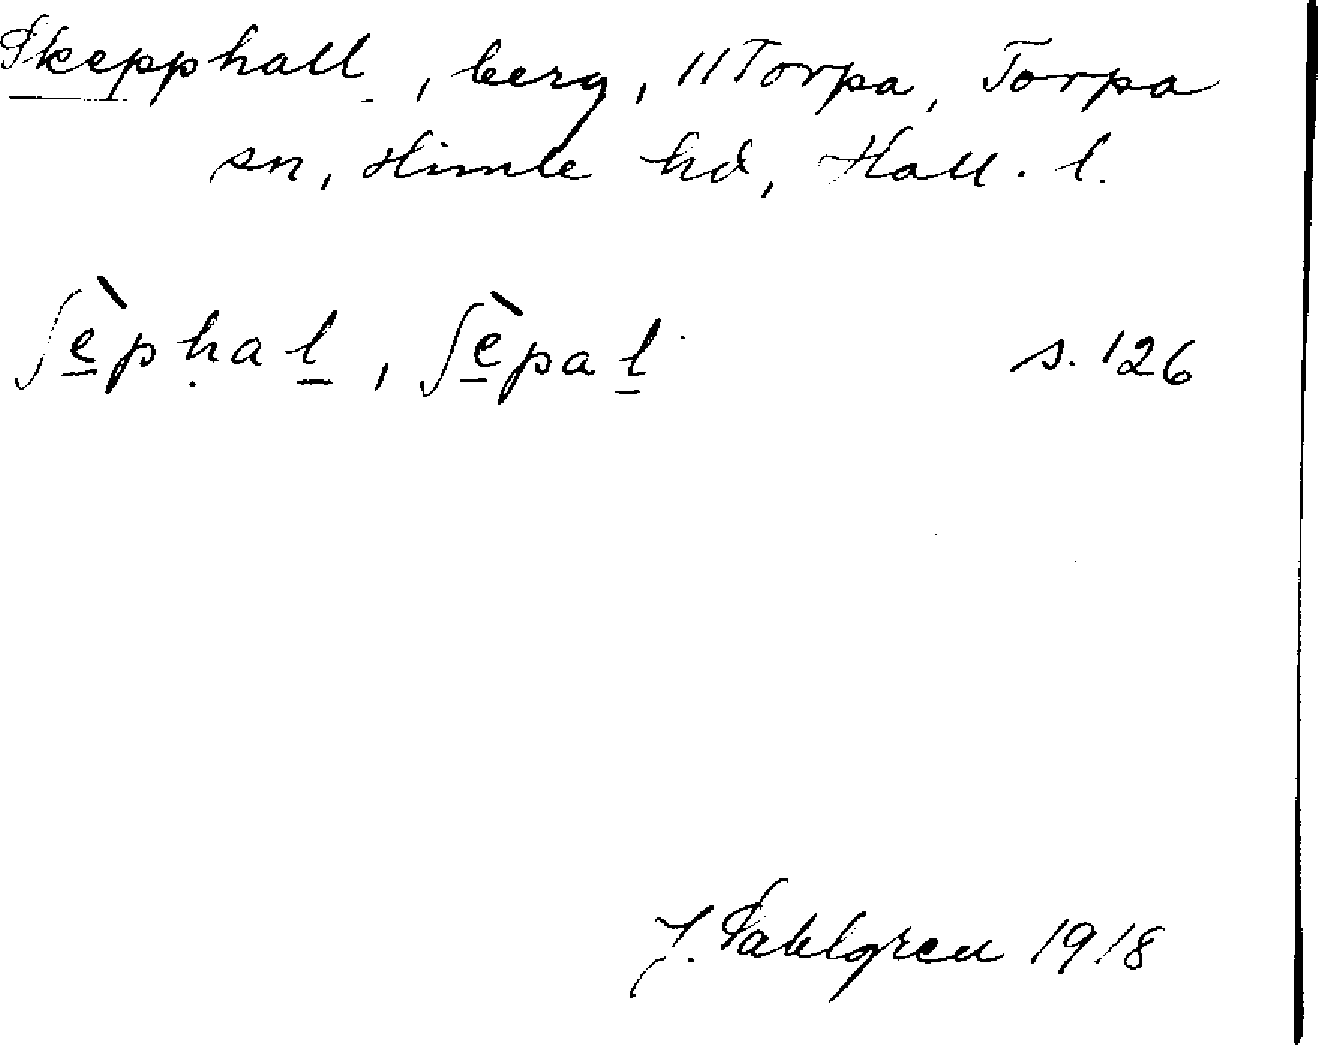 Skepphall, berg, 11 Torpa, Torpa
sn, Himle hd, Hall. l.
ʃèp̱haḻ, ʃèpaḻ s. 126
J. Sahlgren 1918